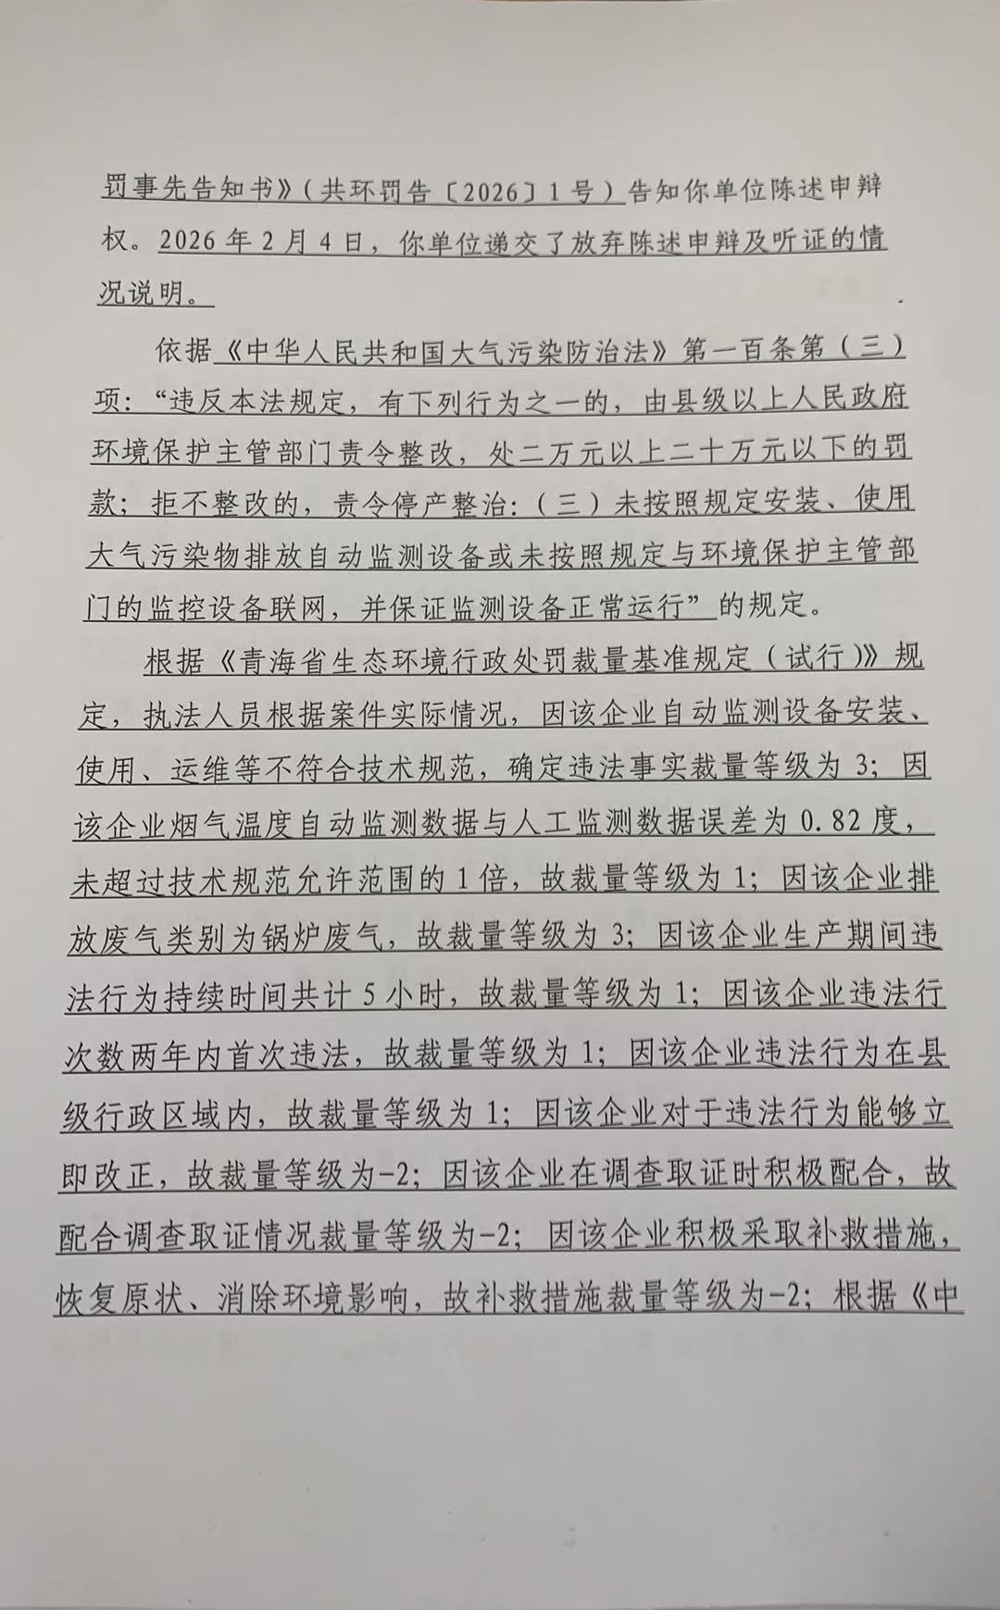 罚事先告知书》（共环罚告〔2026〕1号）告知你单位陈述申辩
权。2026年2月4日，你单位递交了放弃陈述申辩及听证的情
况说明。
依据《中华人民共和国大气污染防治法》第一百条第（三）
项：“违反本法规定，有下列行为之一的，由县级以上人民政府
环境保护主管部门责令整改，处二万元以上二十万元以下的罚
款；拒不整改的，责令停产整治：（三）未按照规定安装、使用
大气污染物排放自动监测设备或未按照规定与环境保护主管部
门的监控设备联网，并保证监测设备正常运行”的规定。
根据《青海省生态环境行政处罚裁量基准规定（试行）》规
定，执法人员根据案件实际情况，因该企业自动监测设备安装、
使用、运维等不符合技术规范，确定违法事实裁量等级为3；因
该企业烟气温度自动监测数据与人工监测数据误差为0.82度，
未超过技术规范允许范围的1倍，故裁量等级为1；因该企业排
放废气类别为锅炉废气，故裁量等级为3；因该企业生产期间违
法行为持续时间共计5小时，故裁量等级为1；因该企业违法行
次数两年内首次违法，故裁量等级为1；因该企业违法行为在县
级行政区域内，故裁量等级为1；因该企业对于违法行为能够立
即改正，故裁量等级为-2；因该企业在调查取证时积极配合，故
配合调查取证情况裁量等级为-2；因该企业积极采取补救措施，
恢复原状、消除环境影响，故补救措施裁量等级为-2；根据《中